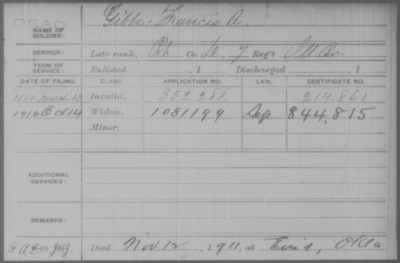 DEAD
NAME OF SOLDIER: Gibbs, Francis A.
SERVICE: Late rank, Co. Regt
TERM OF SERVICE: Enlisted , 1 Discharged , 1
DATE OF FILING. CLASS. APPLICATION NO. LAW. CERTIFICATE NO.
1880 March Invalid, 352288. 214,861
1916 Oct 14 Widow, 1081199 Sep 844,815
Minor,
ADDITIONAL SERVICES:
REMARKS:
Died Nov. 12, 1911, at Enid, Okla